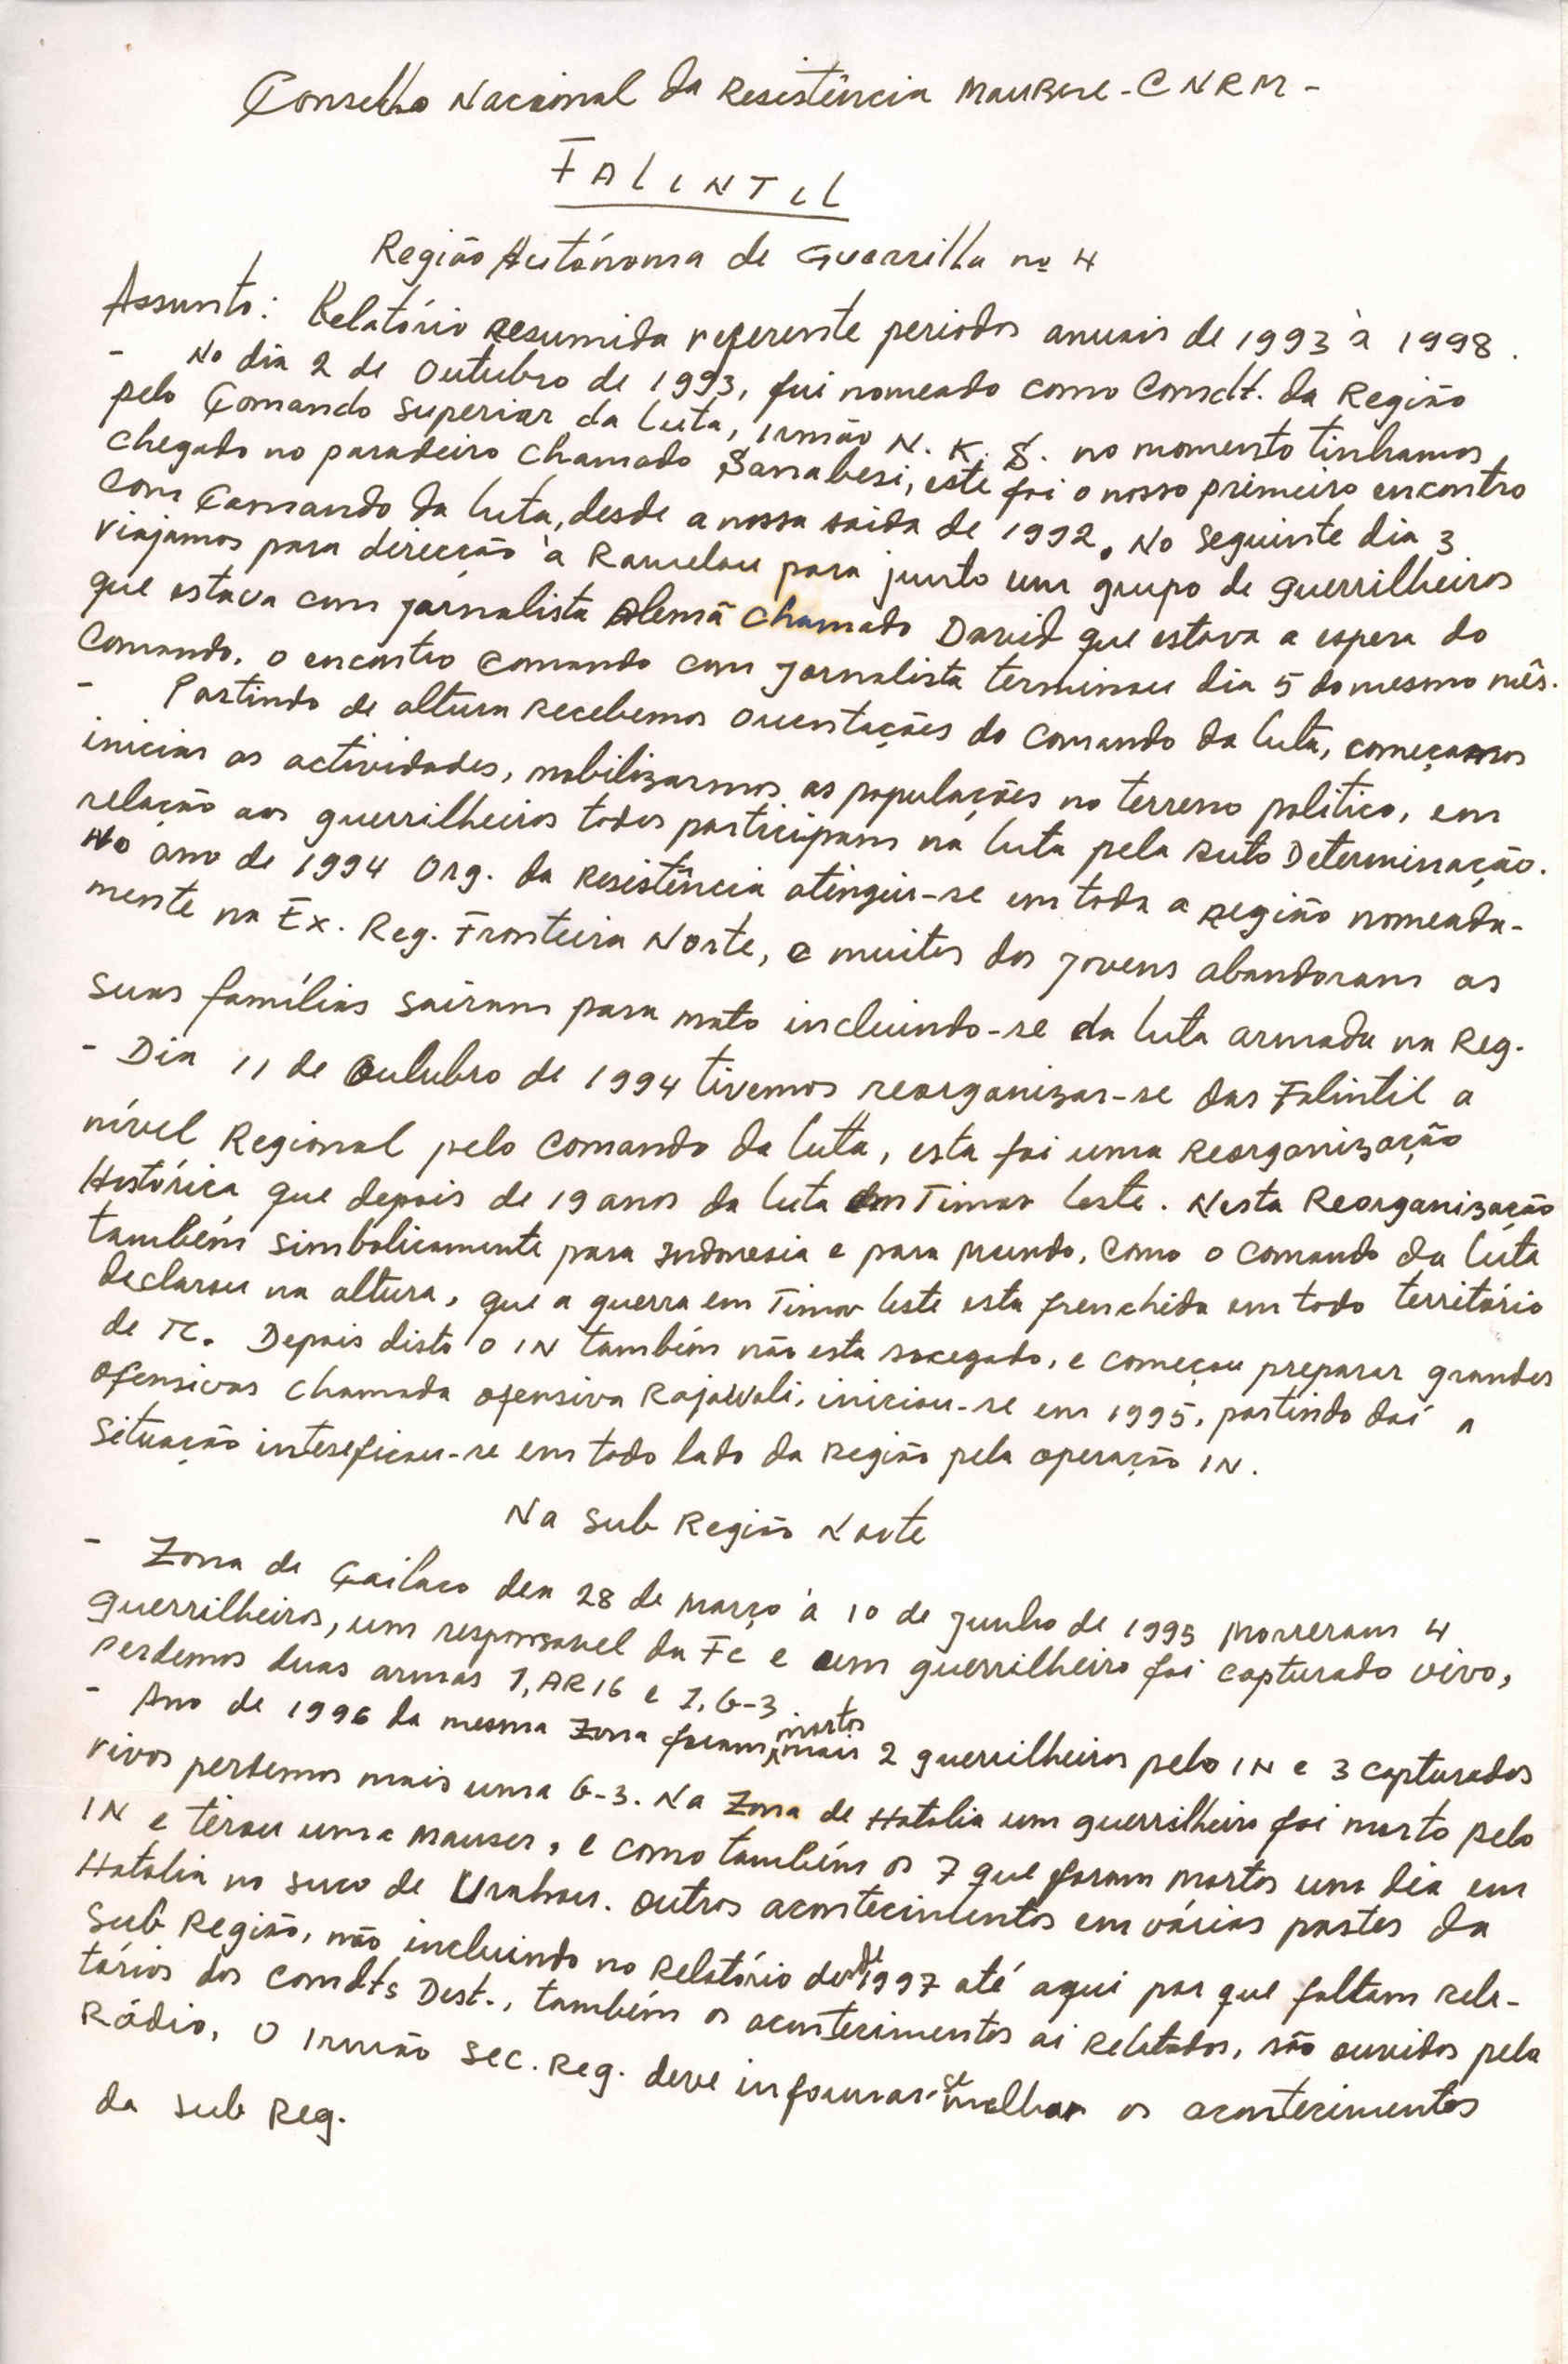 Conselho Nacional da Resistência Maubere - C N R M -
FALINTIL
Região Autónoma de Guerrilha nº 4
Assunto: Relatório resumida referente periodos anuais de 1993 à 1998.
- No dia 2 de Outubro de 1993, fui nomeado como Comdt. da Região
pelo Comando Superior da luta, irmão N. K. S. no momento tinhamos
chegado no paradeiro chamado Sarabesi, este foi o nosso primeiro encontro
com Comando da luta, desde a nossa saida de 1992. No seguinte dia 3
viajamos para direcção à Ramelau para junto um grupo de guerrilheiros
que estava com jornalista Alemã chamado David que estava a espera do
Comando. O encontro Comando com jornalista terminou dia 5 do mesmo mês.
- Partindo de altura recebemos orientações do Comando da luta, começamos
iniciar as actividades, mobilizarmos as populações no terreno politico, em
relação aos guerrilheiros todos participam na luta pela Auto Determinação.
No ano de 1994 Org. da Resistência atingiu-se em toda a região nomeada-
mente na Ex. Reg. Fronteira Norte, e muitos dos jovens abandoram as
suas famílias saíram para mato incluindo-se da luta armada na Reg.
- Dia 11 de Outubro de 1994 tivemos reorganizar-se das Falintil a
nível Regional pelo Comando da luta, esta foi uma Reorganização
Histórica que depois de 19 anos da luta em Timor Leste. Nesta Reorganização
também simbolicamente para Indonesia e para Mundo, como o comando da luta
declarou na altura, que a guerra em Timor Leste esta frenchida em todo território
de TL. Depois disto o IN também não esta socegado, e começou preparar grandes
ofensivas chamada ofensiva Rajawali, iniciou-se em 1995, partindo daí a
situação inteseficou-se em todo lado da Região pela operação IN.
Na Sub Região Norte
- Zona de Cailaco dea 28 de Março à 10 de Junho de 1995 morreram 4
guerrilheiros, um responsavel da FC e um guerrilheiro foi capturado vivo,
perdemos duas armas 1, AR16 e 1, G-3
- Ano de 1996 da mesma Zona foram mortos mais 2 guerrilheiros pelo IN e 3 capturados
vivos perdemos mais uma G-3. Na Zona de Hatolia um guerrilheiro foi morto pelo
IN e tirou uma mauser, e como também os 7 que foram mortos um dia em
Hatolia no suco de Urahou. Outros acontecimentos em várias partes da
Sub Região, não incluindo no Relatório de 1997 até aqui por que faltam rela-
tórios dos comdts Dest., também os acontecimentos ai Relatados, são ouvidos pela
Rádio, O Irmão Sec. Reg. deve informar-se melhor os acontecimentos
da Sub Reg.